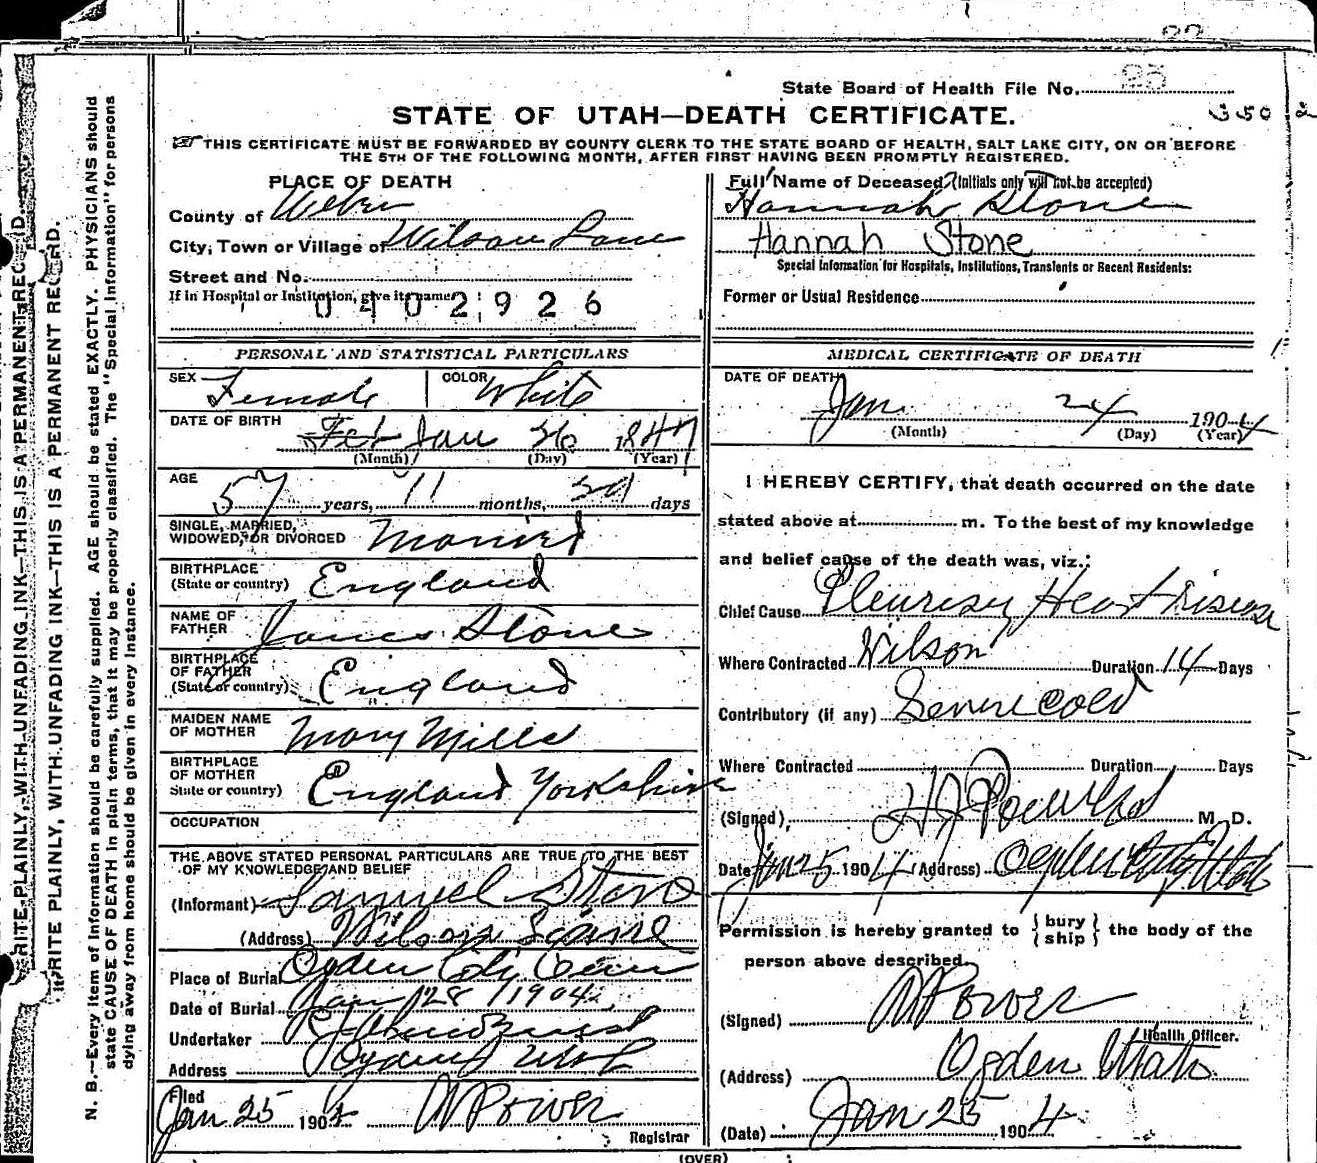 State Board of Health File No. 25
STATE OF UTAH—DEATH CERTIFICATE.
350 2
THIS CERTIFICATE MUST BE FORWARDED BY COUNTY CLERK TO THE STATE BOARD OF HEALTH, SALT LAKE CITY, ON OR BEFORE
THE 5TH OF THE FOLLOWING MONTH, AFTER FIRST HAVING BEEN PROMPTLY REGISTERED.
PLACE OF DEATH
County of Weber
City, Town or Village of Wilson Lane
Street and No.
If in Hospital or Institution, give its name
0402926
Full Name of Deceased (Initials only will not be accepted)
Hannah Stone
Hannah Stone
Special Information for Hospitals, Institutions, Transients or Recent Residents:
Former or Usual Residence
PERSONAL AND STATISTICAL PARTICULARS
SEX Female COLOR White
DATE OF BIRTH Feb Jan 26 1847
(Month) (Day) (Year)
AGE 57 years, 11 months, days
SINGLE, MARRIED,
WIDOWED, OR DIVORCED Married
BIRTHPLACE
(State or country) England
NAME OF
FATHER James Stone
BIRTHPLACE
OF FATHER
(State or country) England
MAIDEN NAME
OF MOTHER Mary Mills
BIRTHPLACE
OF MOTHER
State or country) England Yorkshire
OCCUPATION
THE ABOVE STATED PERSONAL PARTICULARS ARE TRUE TO THE BEST
OF MY KNOWLEDGE AND BELIEF
(Informant) Samuel Stone
(Address) Wilson
Place of Burial Ogden City Cem
Date of Burial Jan 28 1904
Undertaker
Address Ogden Utah
Filed
Jan 25 1904
Registrar
MEDICAL CERTIFICATE OF DEATH
DATE OF DEATH
Jan 24 1904
(Month) (Day) (Year)
I HEREBY CERTIFY, that death occurred on the date
stated above at m. To the best of my knowledge
and belief cause of the death was, viz.:
Chief Cause Pleuresy Heart Disease
Where Contracted Wilson Duration 14 Days
Contributory (if any) Severe cold
Where Contracted Duration Days
(Signed), H J Powers M. D.
Date Jan 25 1904 (Address) Ogden City Utah
Permission is hereby granted to { bury
ship } the body of the
person above described.
(Signed)
Health Officer.
(Address) Ogden Utah
(Date) Jan 25 1904
(OVER)
WRITE PLAINLY, WITH UNFADING INK—THIS IS A PERMANENT RECORD.
WRITE PLAINLY, WITH UNFADING INK—THIS IS A PERMANENT RECORD.
N. B.—Every item of information should be carefully supplied. AGE should be stated EXACTLY. PHYSICIANS should
state CAUSE OF DEATH in plain terms, that it may be properly classified. The "Special Information" for persons
dying away from home should be given in every instance.